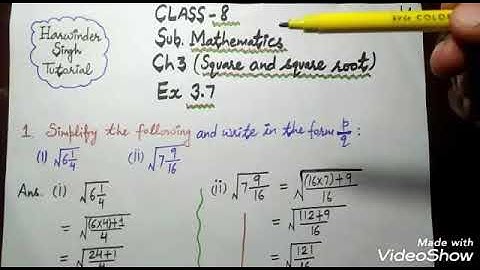 CLASS-8
Harwinder Singh Tutorial
Sub. Mathematics
Ch 3 (Square and square root)
Ex 3.7
1. Simplify the following and write in the form p/q :
(i) √6 1/4 (ii) √7 9/16
Ans. (i) √6 1/4 (ii) √7 9/16 = √((16×7)+9)/16
= √((6×4)+1)/4 = √(112+9)/16
= √(24+1)/4 = √121/16
Made with
VideoShow